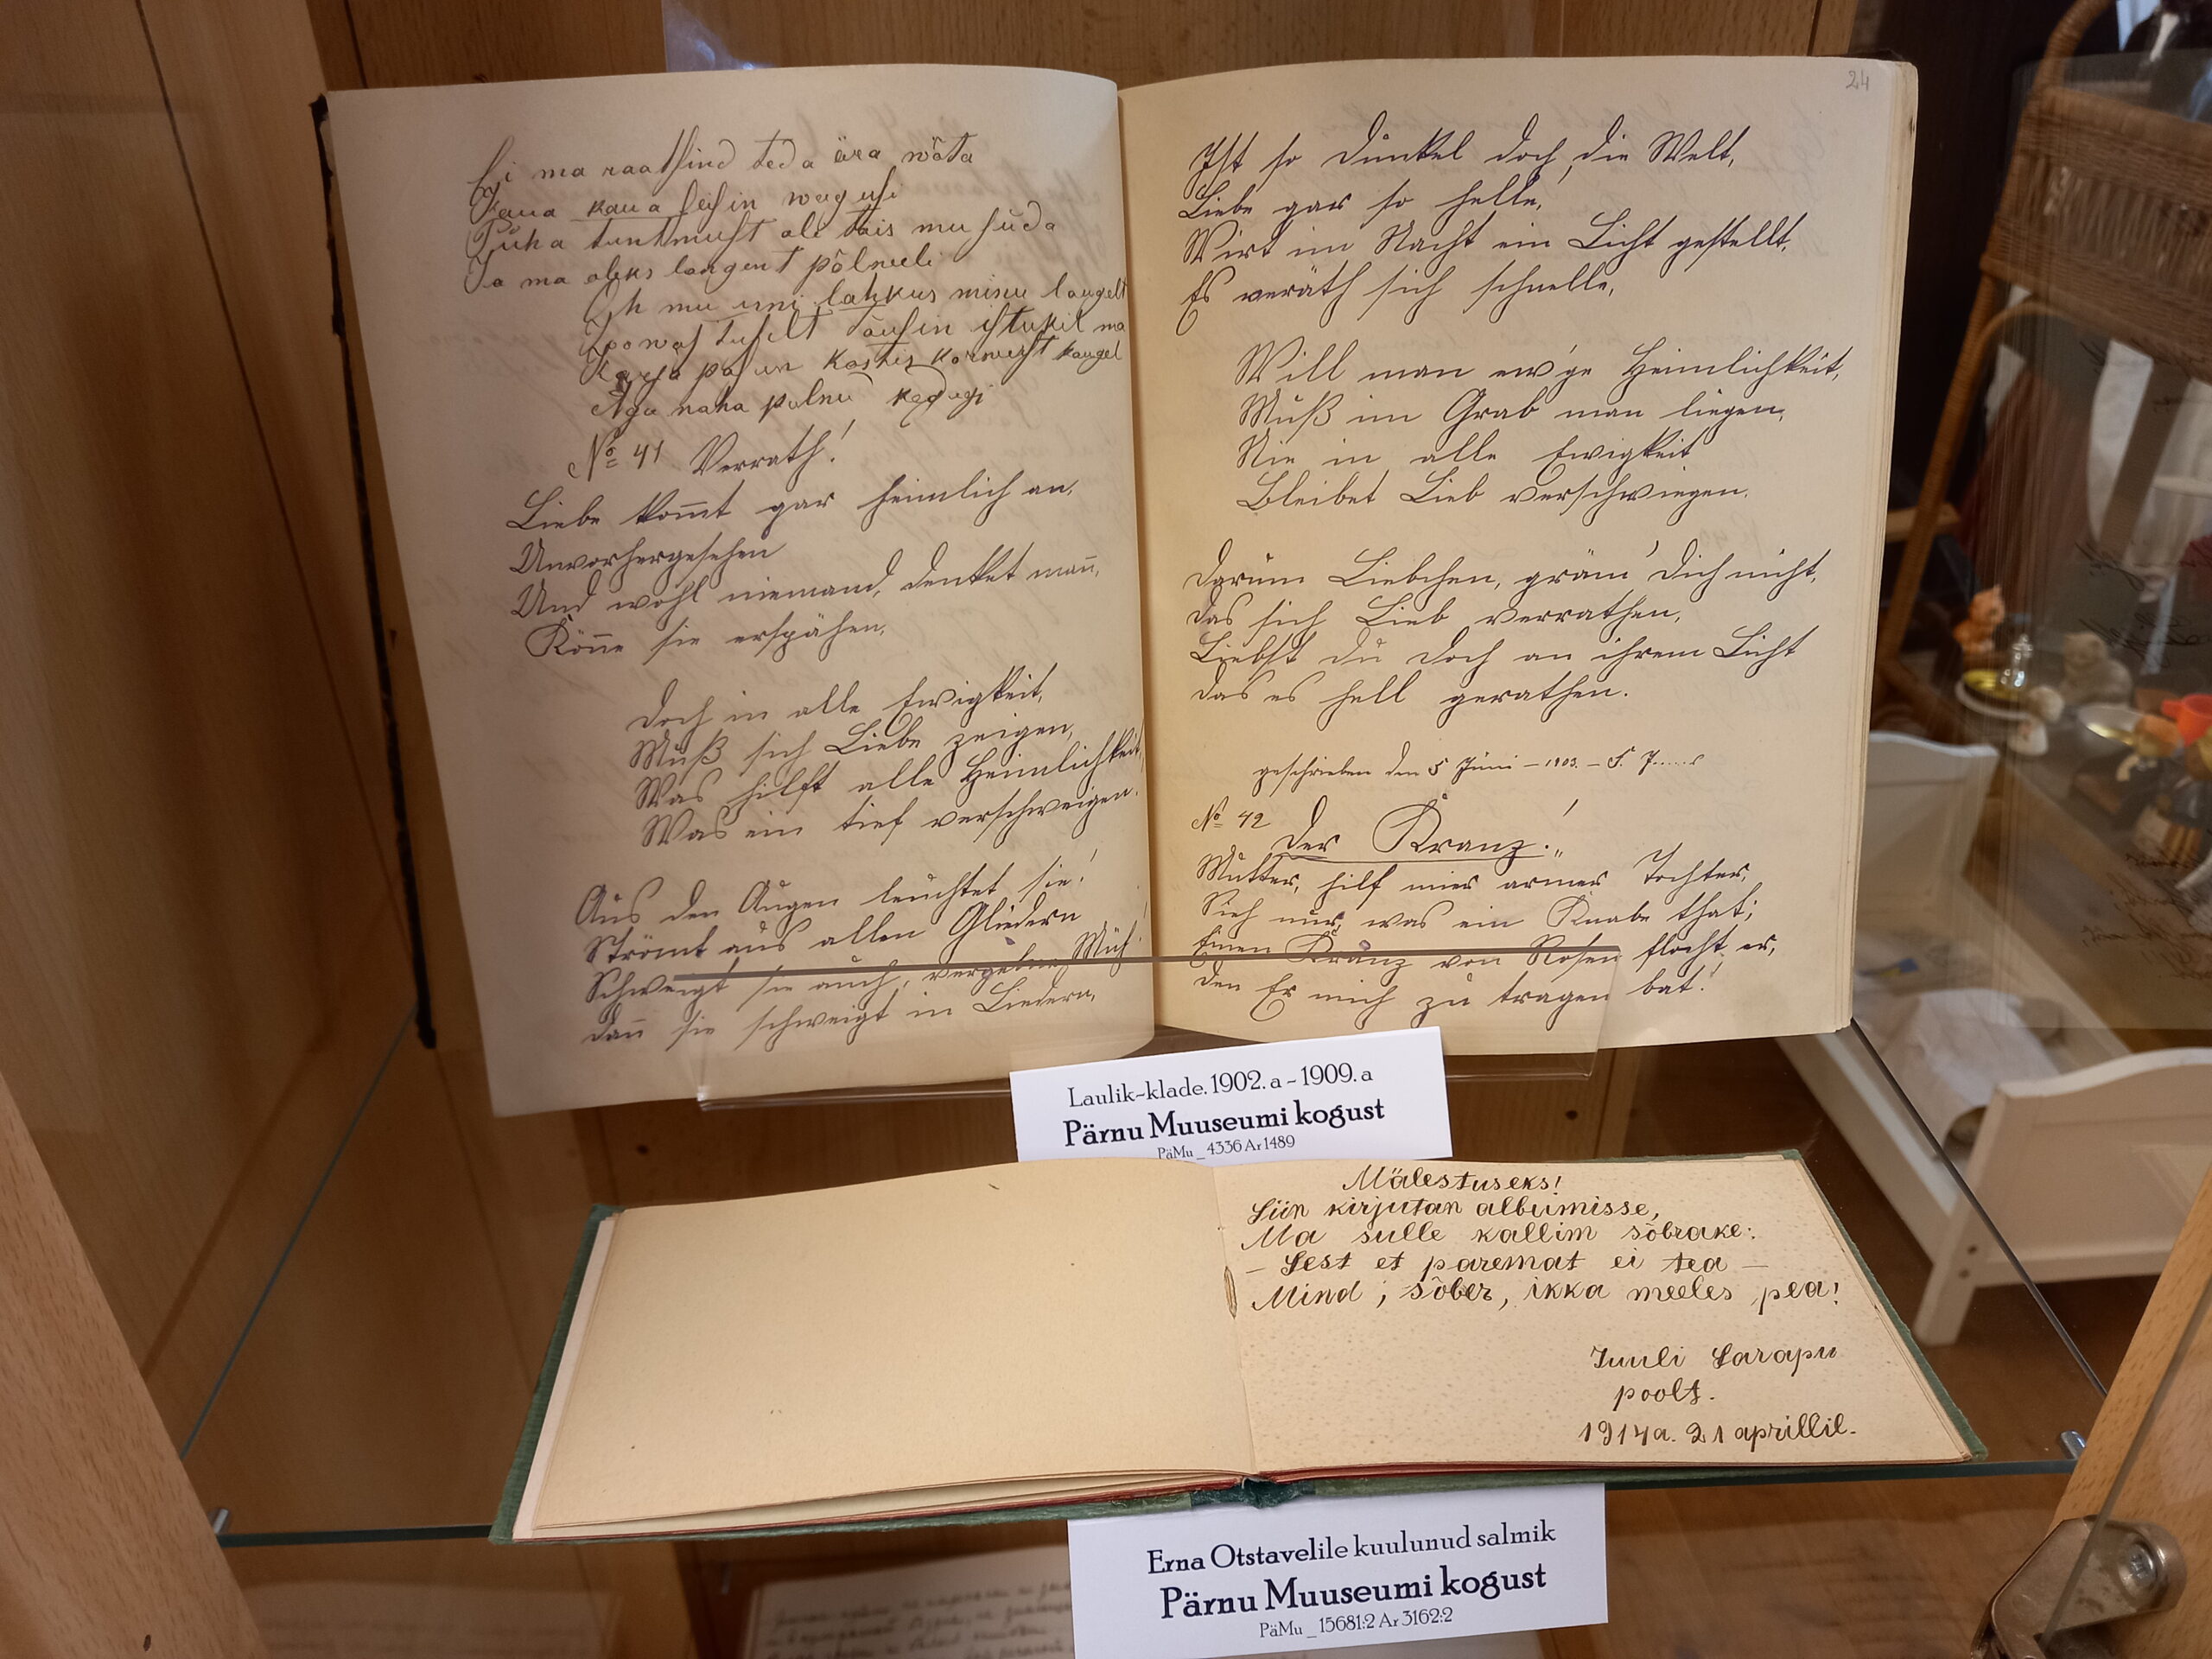 Ei ma raatsind teda ära wõta
Kaua kaua seisin wagusi
Püha tundmust oli täis mu süda
Ja ma oleks langent põlweeli
Oh mu uni lahkus minu laugelt
Tõusin istukil ma
Karja pasun kostis kõrwust kaugel
Aga naha polnud kedagi
№ 41 Verrath!
Liebe kom̅t gar heimlich an,
Unvorhergesehen
Und wohl niemand, denket man̅,
Kön̅e sie erspähen,
Doch in alle Ewigkeit,
Muß sich Liebe zeigen,
Was hilft alle Heimlichkeit,
Was ein tief verschweigen.
Aus den Augen leuchtet sie!
Strömt aus allen Gliedern
Schweigt sie auch, vergebne Müh!
Dan̅ sie schweigt in Liedern,
24
Ist so dunkel doch, die Welt,
Liebe gar so helle,
Wirt im Nacht ein Licht gestellt,
Es veräth sich schnelle,
Will man ew'ge Heimlichkeit,
Muß im Grab man liegen,
Nie in alle Ewigkeit
Bleibet Lieb verschwiegen.
Darum Liebchen, gräm' Dich nicht,
Das sich Lieb verrathen,
Liebst du doch an ihrem Licht
Das es hell gerathen.
geschrieben den 5 Juni – 1903. – S. J......s
№ 42
Der Kranz!
Mutter, hilf mier armer Tochter,
Sieh nur, was ein Knabe that;
Einen Kranz von Rosen flocht er,
Den Er mich zu tragen bat!
Laulik-klade. 1902. a - 1909. a
Pärnu Muuseumi kogust
PäMu _ 4336 Ar 1489
Mälestuseks!
Siin kirjutan albumisse,
Ma sulle kallim sõbrake:
– Sest et paremat ei tea –
Mind, sõber, ikka meeles pea!
Juuli Sarapu
poolt.
1914a. 21 aprillil.
Erna Otstavelile kuulunud salmik
Pärnu Muuseumi kogust
PäMu _ 15681:2 Ar 3162:2